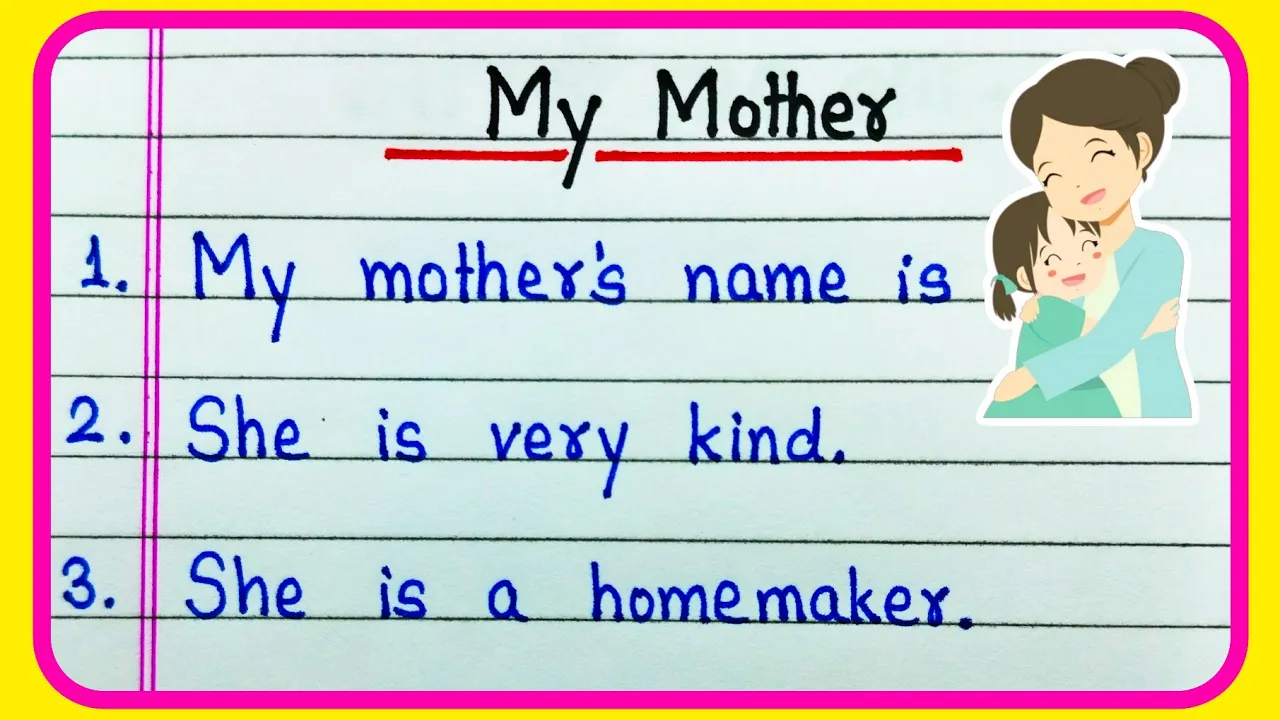 My Mother
1. My mother's name is
2. She is very kind.
3. She is a homemaker.